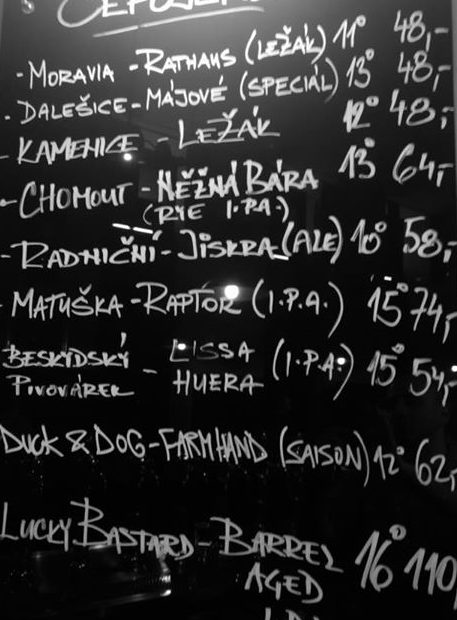 - MORAVIA - RATHAUS (LEŽÁK) 11° 48,-
- DALEŠICE - MÁJOVÉ (SPECIÁL) 13° 48,-
- KAMENICE - LEŽÁK 12° 48,-
- CHOMOUT - NĚŽNÁ BÁRA 13° 64,-
(RYE I.P.A.)
- RADNIČNÍ - JISKRA (ALE) 10° 58,-
- MATUŠKA - RAPTOR (I.P.A.) 15° 74,-
BESKYDSKÝ PIVOVÁREK - LISSA HUERA (I.P.A.) 15° 54,-
DUCK & DOG - FARMHAND (SAISON) 12° 62,
LUCKY BASTARD - BARREL 16° 110
AGED